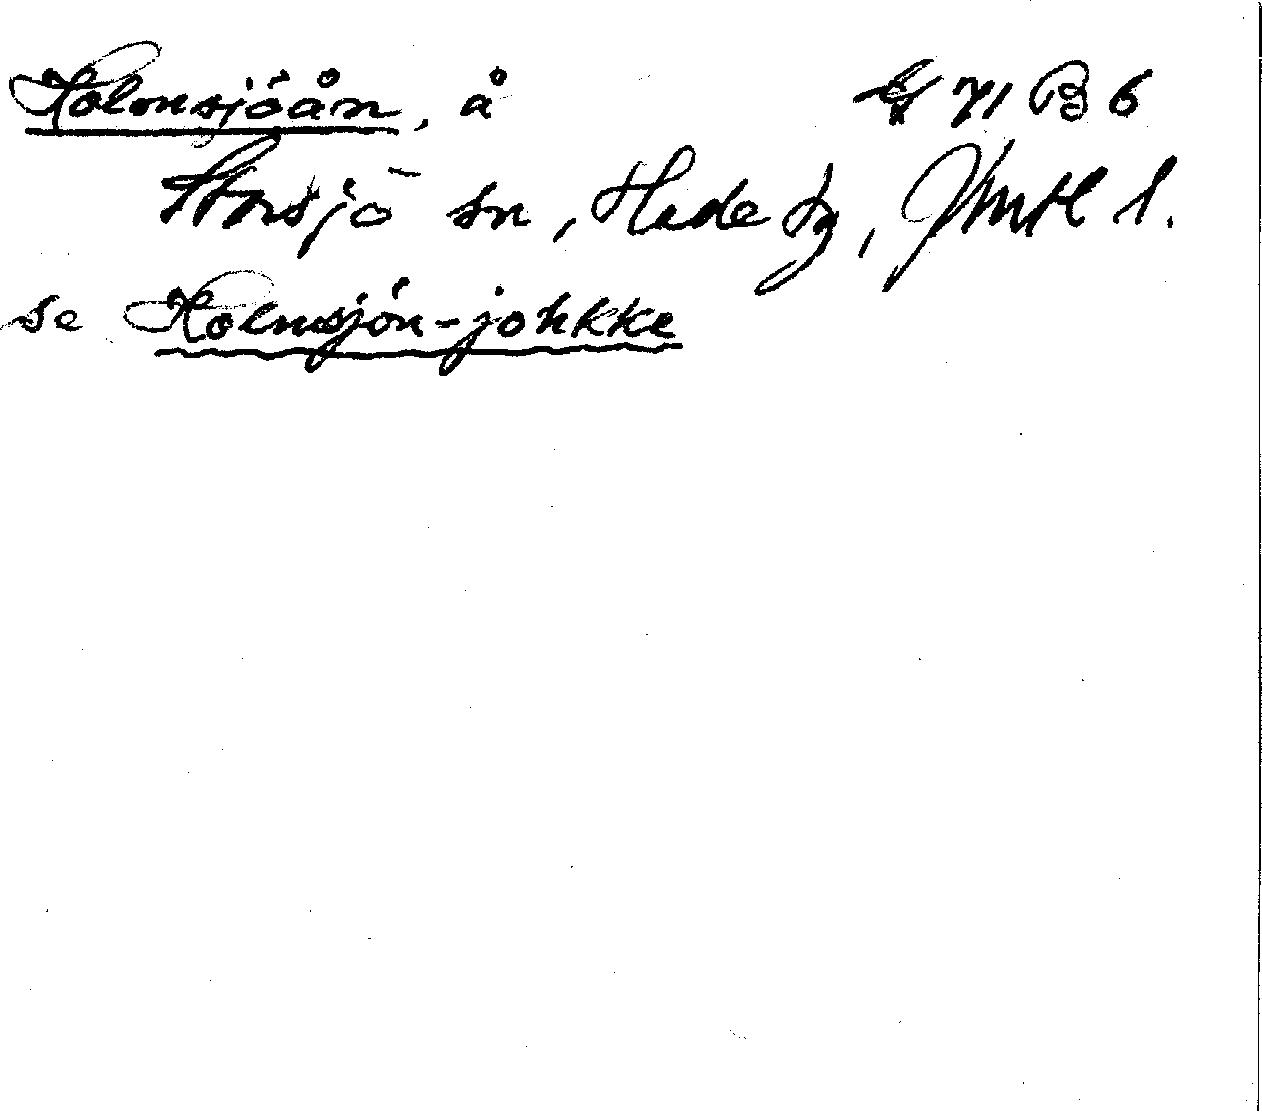 Holmsjöån, å 71 B 6
Storsjö sn, Hede tg, Jämtl l.
se Holmsjön-johkke